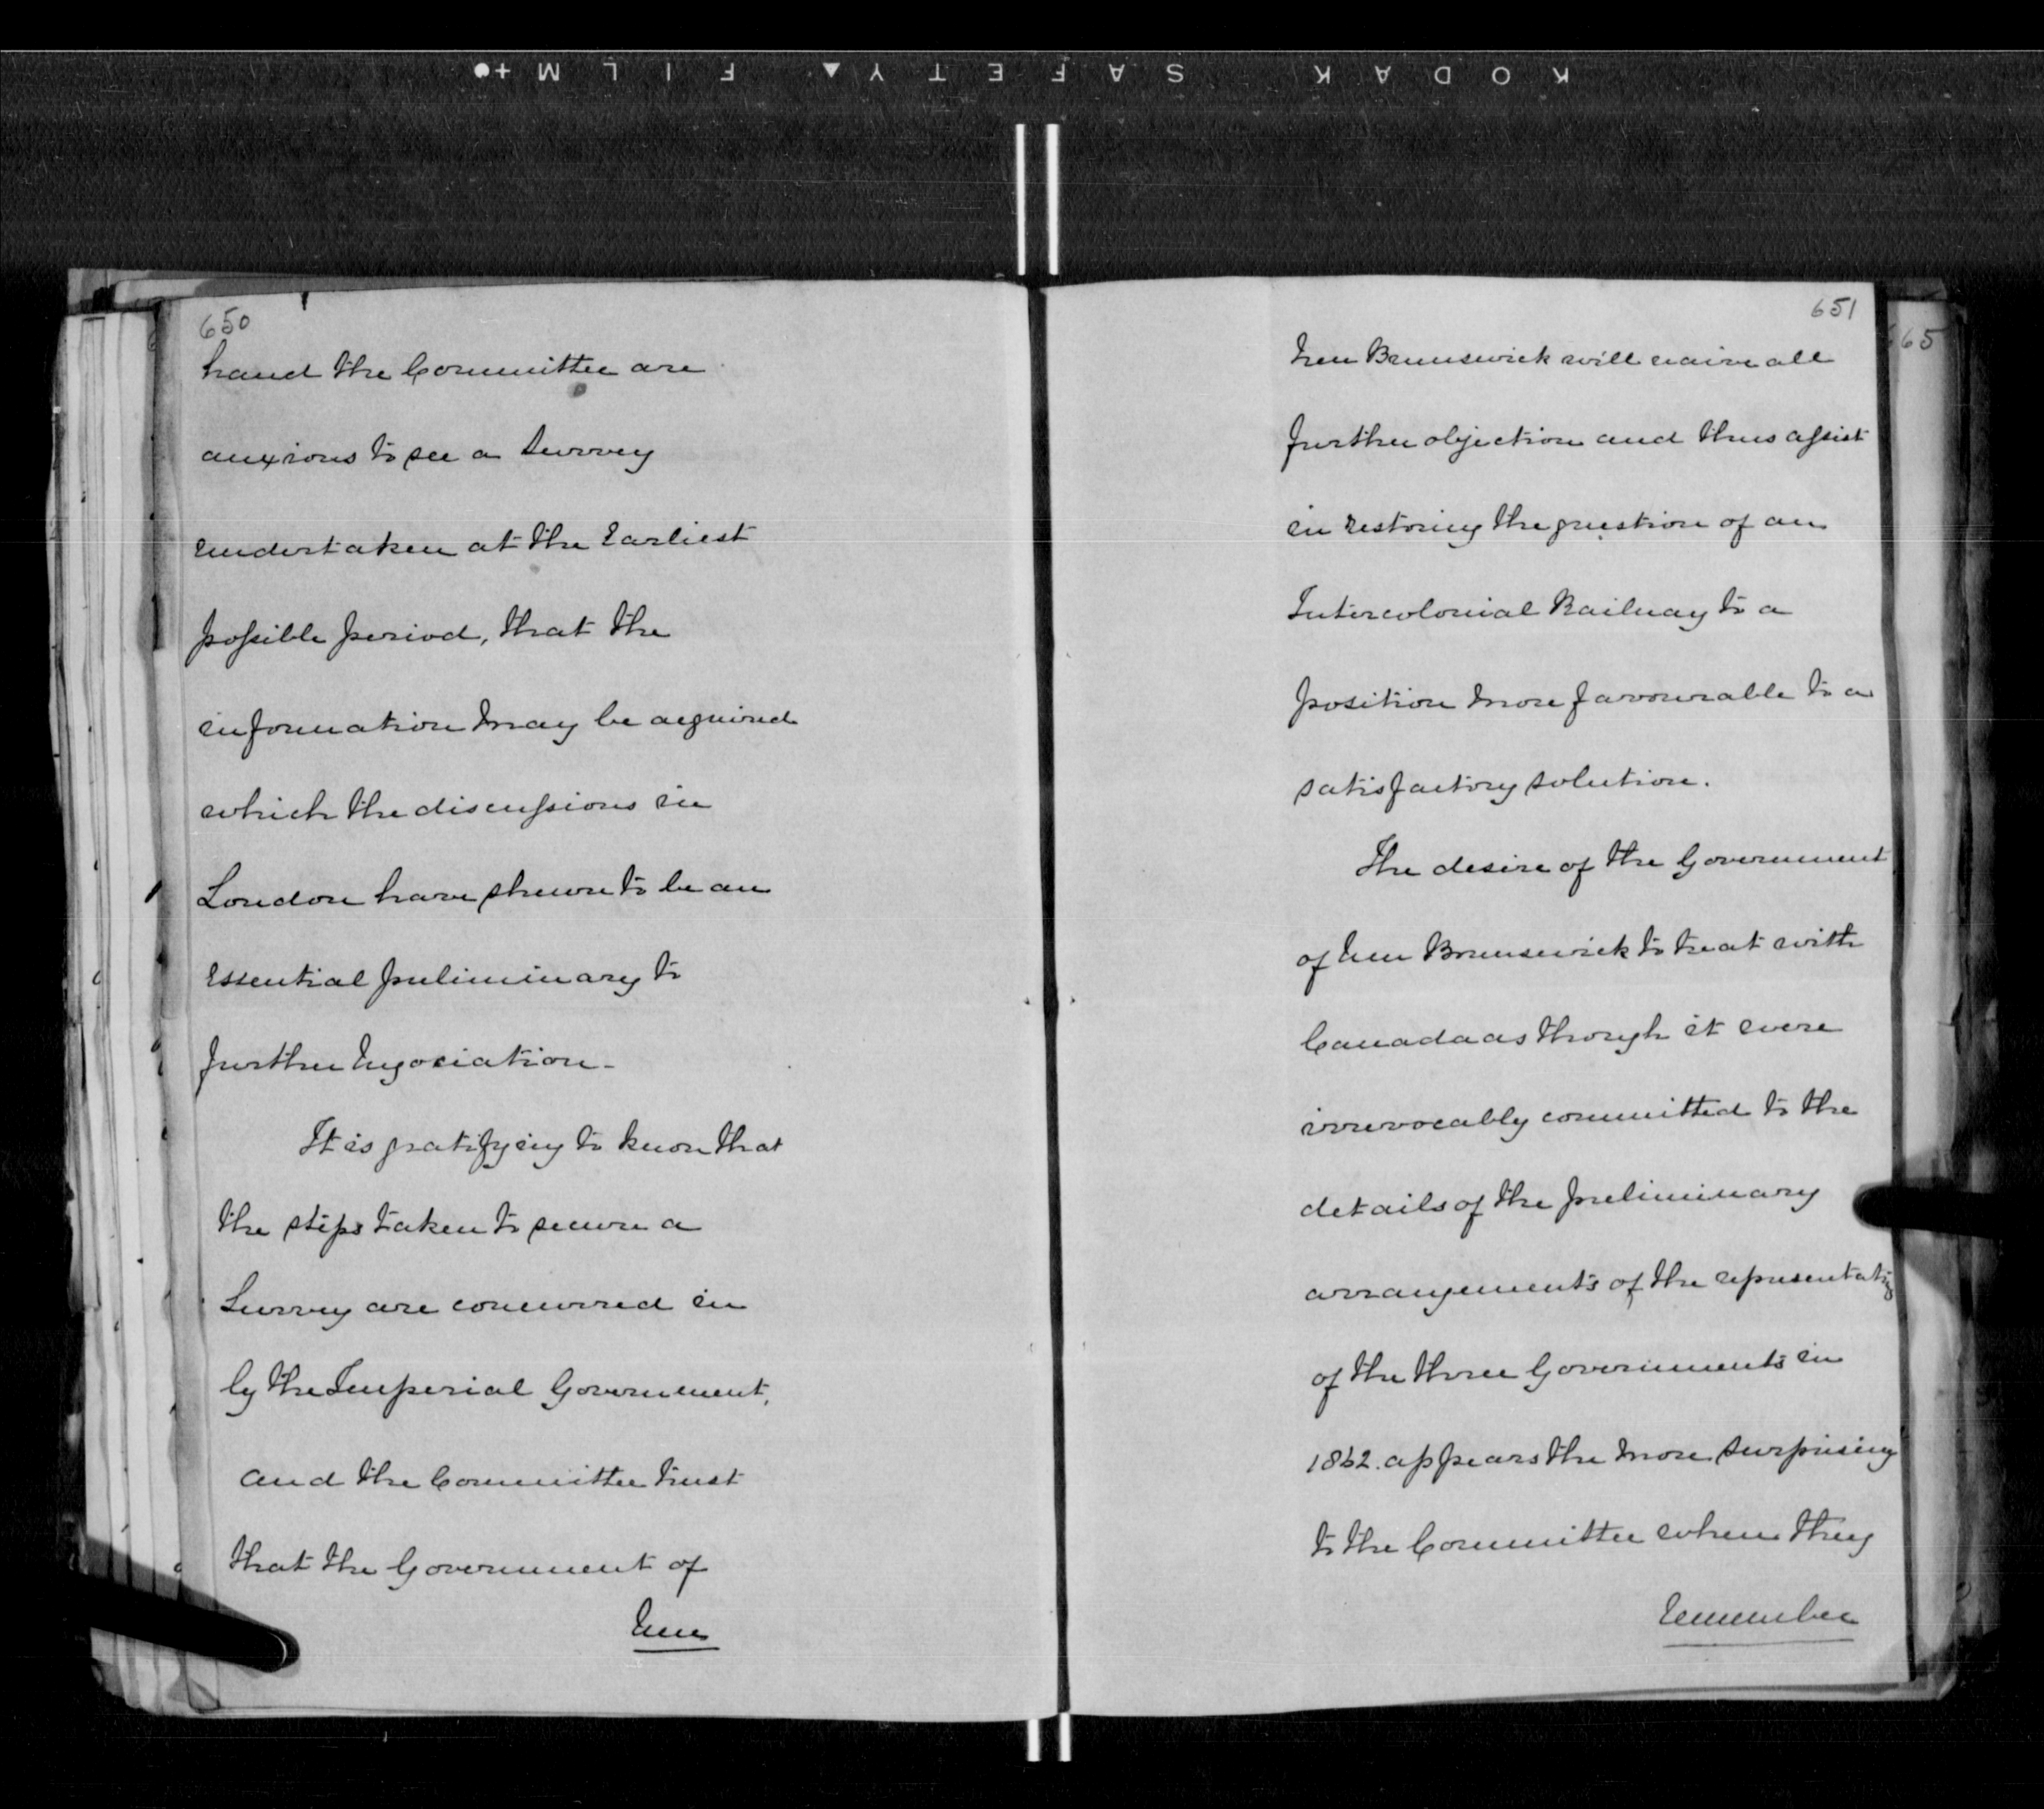 KODAK SAFETY FILM
650
hand the Committee are
anxious to see a Survey
undertaken at the Earliest
possible period, that the
information may be acquired
which the discussions in
London have shewn to be an
Essential preliminary to
further Negociation -
It is gratifying to know that
the steps taken to secure a
Survey are concurred in
by the Imperial Government,
and the Committee trust
that the Government of
New
651
New Brunswick will waive all
further objection and thus assist
in restoring the question of an
Intercolonial Railway to a
position more favourable to a
satisfactory solution.
The desire of the Government
of New Brunswick to treat with
Canada as though it were
irrevocably committed to the
details of the preliminary
arrangements of the
of the three Governments in
1862. appears the more surprising
to the Committee when they
remember
665